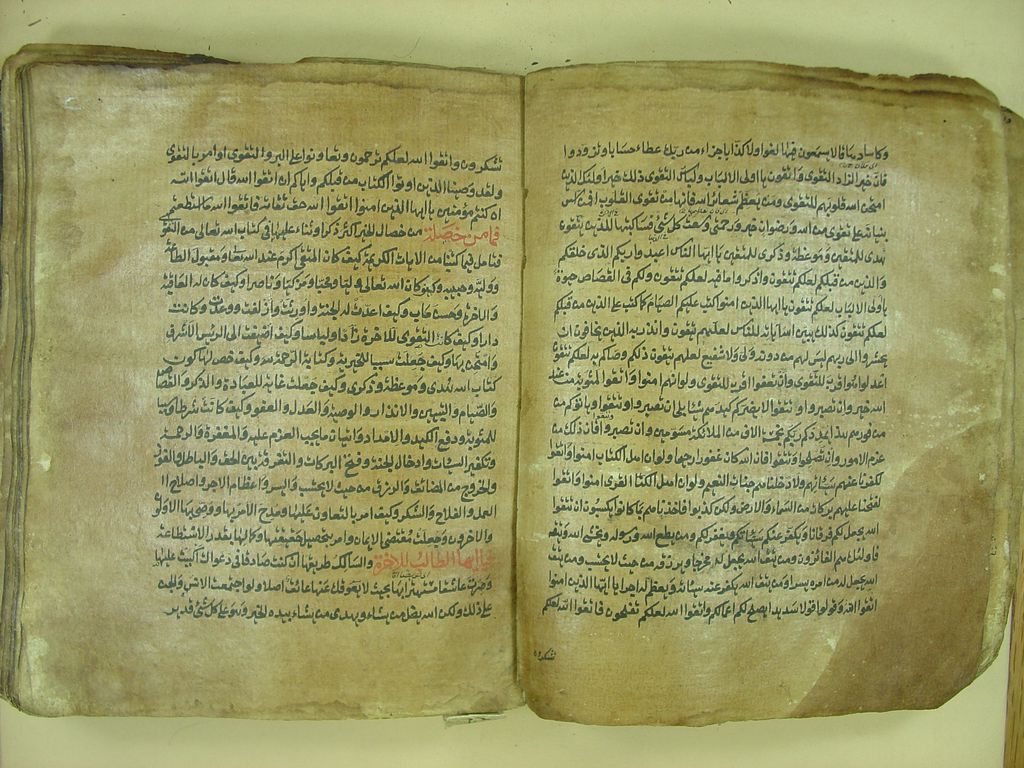 وكاسا دهاقا لا يسمعون فيها لغوا ولا كذابا جزاء من ربك عطاء حسابا وتزودوا
فان خير الزاد التقوى واتقون يا اولى الالباب ولباس التقوى ذلك خير اولئك الذين
امتحن الله قلوبهم للتقوى ومن يعظم شعائر الله فانها من تقوى القلوب افمن اسس
بنيانه على تقوى من الله ورضوان خير ورحمتي وسعت كل شئ فساكتبها للذين يتقون
هدى للمتقين وموعظة وذكرى للمتقين يا ايها الناس اعبدوا ربكم الذى خلقكم
والذين من قبلكم لعلكم تتقون واذكروا ما فيه لعلكم تتقون ولكم فى القصاص حيوة
يا اولى الالباب لعلكم تتقون يا ايها الذين امنوا كتب عليكم الصيام كما كتب على الذين من قبلكم
لعلكم تتقون كذلك يبين الله اياته للناس لعلهم يتقون وانذر به الذين يخافون ان
يحشروا الى ربهم ليس لهم من دونه ولى ولا شفيع لعلهم يتقون ذلكم وصاكم به لعلكم تتقون
اعدلوا هو اقرب للتقوى وان تعفوا اقرب للتقوى ولو انهم امنوا واتقوا لمثوبة من عند
الله خير وان تصبروا وتتقوا لا يضركم كيدهم شيئا بلى ان تصبروا وتتقوا وياتوكم من
فورهم هذا يمددكم ربكم بخمسة الاف من الملائكة مسومين وان تصبروا وتتقوا فان ذلك من
عزم الامور وان تصلحوا وتتقوا فان الله كان غفورا رحيما ولو ان اهل الكتاب امنوا واتقوا
لكفرنا عنهم سيئاتهم ولادخلناهم جنات النعيم ولو ان اهل القرى امنوا واتقوا
لفتحنا عليهم بركات من السماء والارض ولكن كذبوا فاخذناهم بما كانوا يكسبون ان تتقوا
الله يجعل لكم فرقانا ويكفر عنكم سيئاتكم ويغفر لكم ومن يطع الله ورسوله ويخش الله ويتقه
فاولئك هم الفائزون ومن يتق الله يجعل له مخرجا ويرزقه من حيث لا يحتسب ومن يتق
الله يجعل له من امره يسرا ومن يتق الله يكفر عنه سيئاته ويعظم له اجرا يا ايها الذين امنوا
اتقوا الله وقولوا قولا سديدا يصلح لكم اعمالكم واتقوا الله لعلكم تفلحون فاتقوا الله لعلكم
تشكرون
تشكرون واتقوا الله لعلكم ترحمون وتعاونوا على البر والتقوى او امر بالتقوى
ولقد وصينا الذين اوتوا الكتاب من قبلكم واياكم ان اتقوا الله قال اتقوا الله
ان كنتم مؤمنين يا ايها الذين امنوا اتقوا الله حق تقاته فاتقوا الله ما استطعتم
فما من خصلة من خصال الخير اكثر ذكرا وثناء عليها فى كتاب الله تعالى من التقوى
فتامل فيما كتبنا من الايات الكريمة كيف كان المتقى اكرم عند الله تعالى ومقبول الطاعة
ووليه وحبيبه وكيف كان الله تعالى وليا ومحبا ومزكيا وناصرا وكيف كان له العاقبة
والاخرة وحسن ماب وكيف اعدت له الجنة واورثت وازلفت ووعدت وكانت
دارا وكيف كان التقوى للاخرة زادا ولباسا وكيف اضيفت الى الرئيس الاشرف
وامتحن بها وكيف جعلت سببا للخيرية وكتابة الرحمة وكيف خص لها كون
كتاب الله هدى وموعظة وذكرى وكيف جعلت غاية للعبادة والذكر والقصاص
والصيام والتبيين والانذار والوصية والعدل والعفو وكيف كانت شرطا وسببا
للمثوبة ودفع الكيد والامداد واتيان ما يجب العزم عليه والمغفرة والرحمة
وتكفير السيئات وادخال الجنة وفتح البركات والتفرقة بين الحق والباطل والفوز
والخروج من المضائق والرزق من حيث لا يحتسب واليسر واعظام الاجر واصلاح
العمل والفلاح والشكر وكيف امر بالتعاون عليها ومدح الامر بها ووصى بها الاولون
والاخرون وجعلت مقتضى الايمان وامر بتحصيل حقيقتها وكمالها بقدر الاستطاعة
فيا ايها الطالب للاخرة والسالك طريقها ان كنت صادقا فى دعواك اكبب عليها
وصر بها عاشقا مشتهرا بها بحيث لا يعوقك عنها عائق اصلا ولو اجتمعت الانس والجن
على ذلك ولكن الله يضل من يشاء ويهدى من يشاء بيده الخير وهو على كل شئ قدير